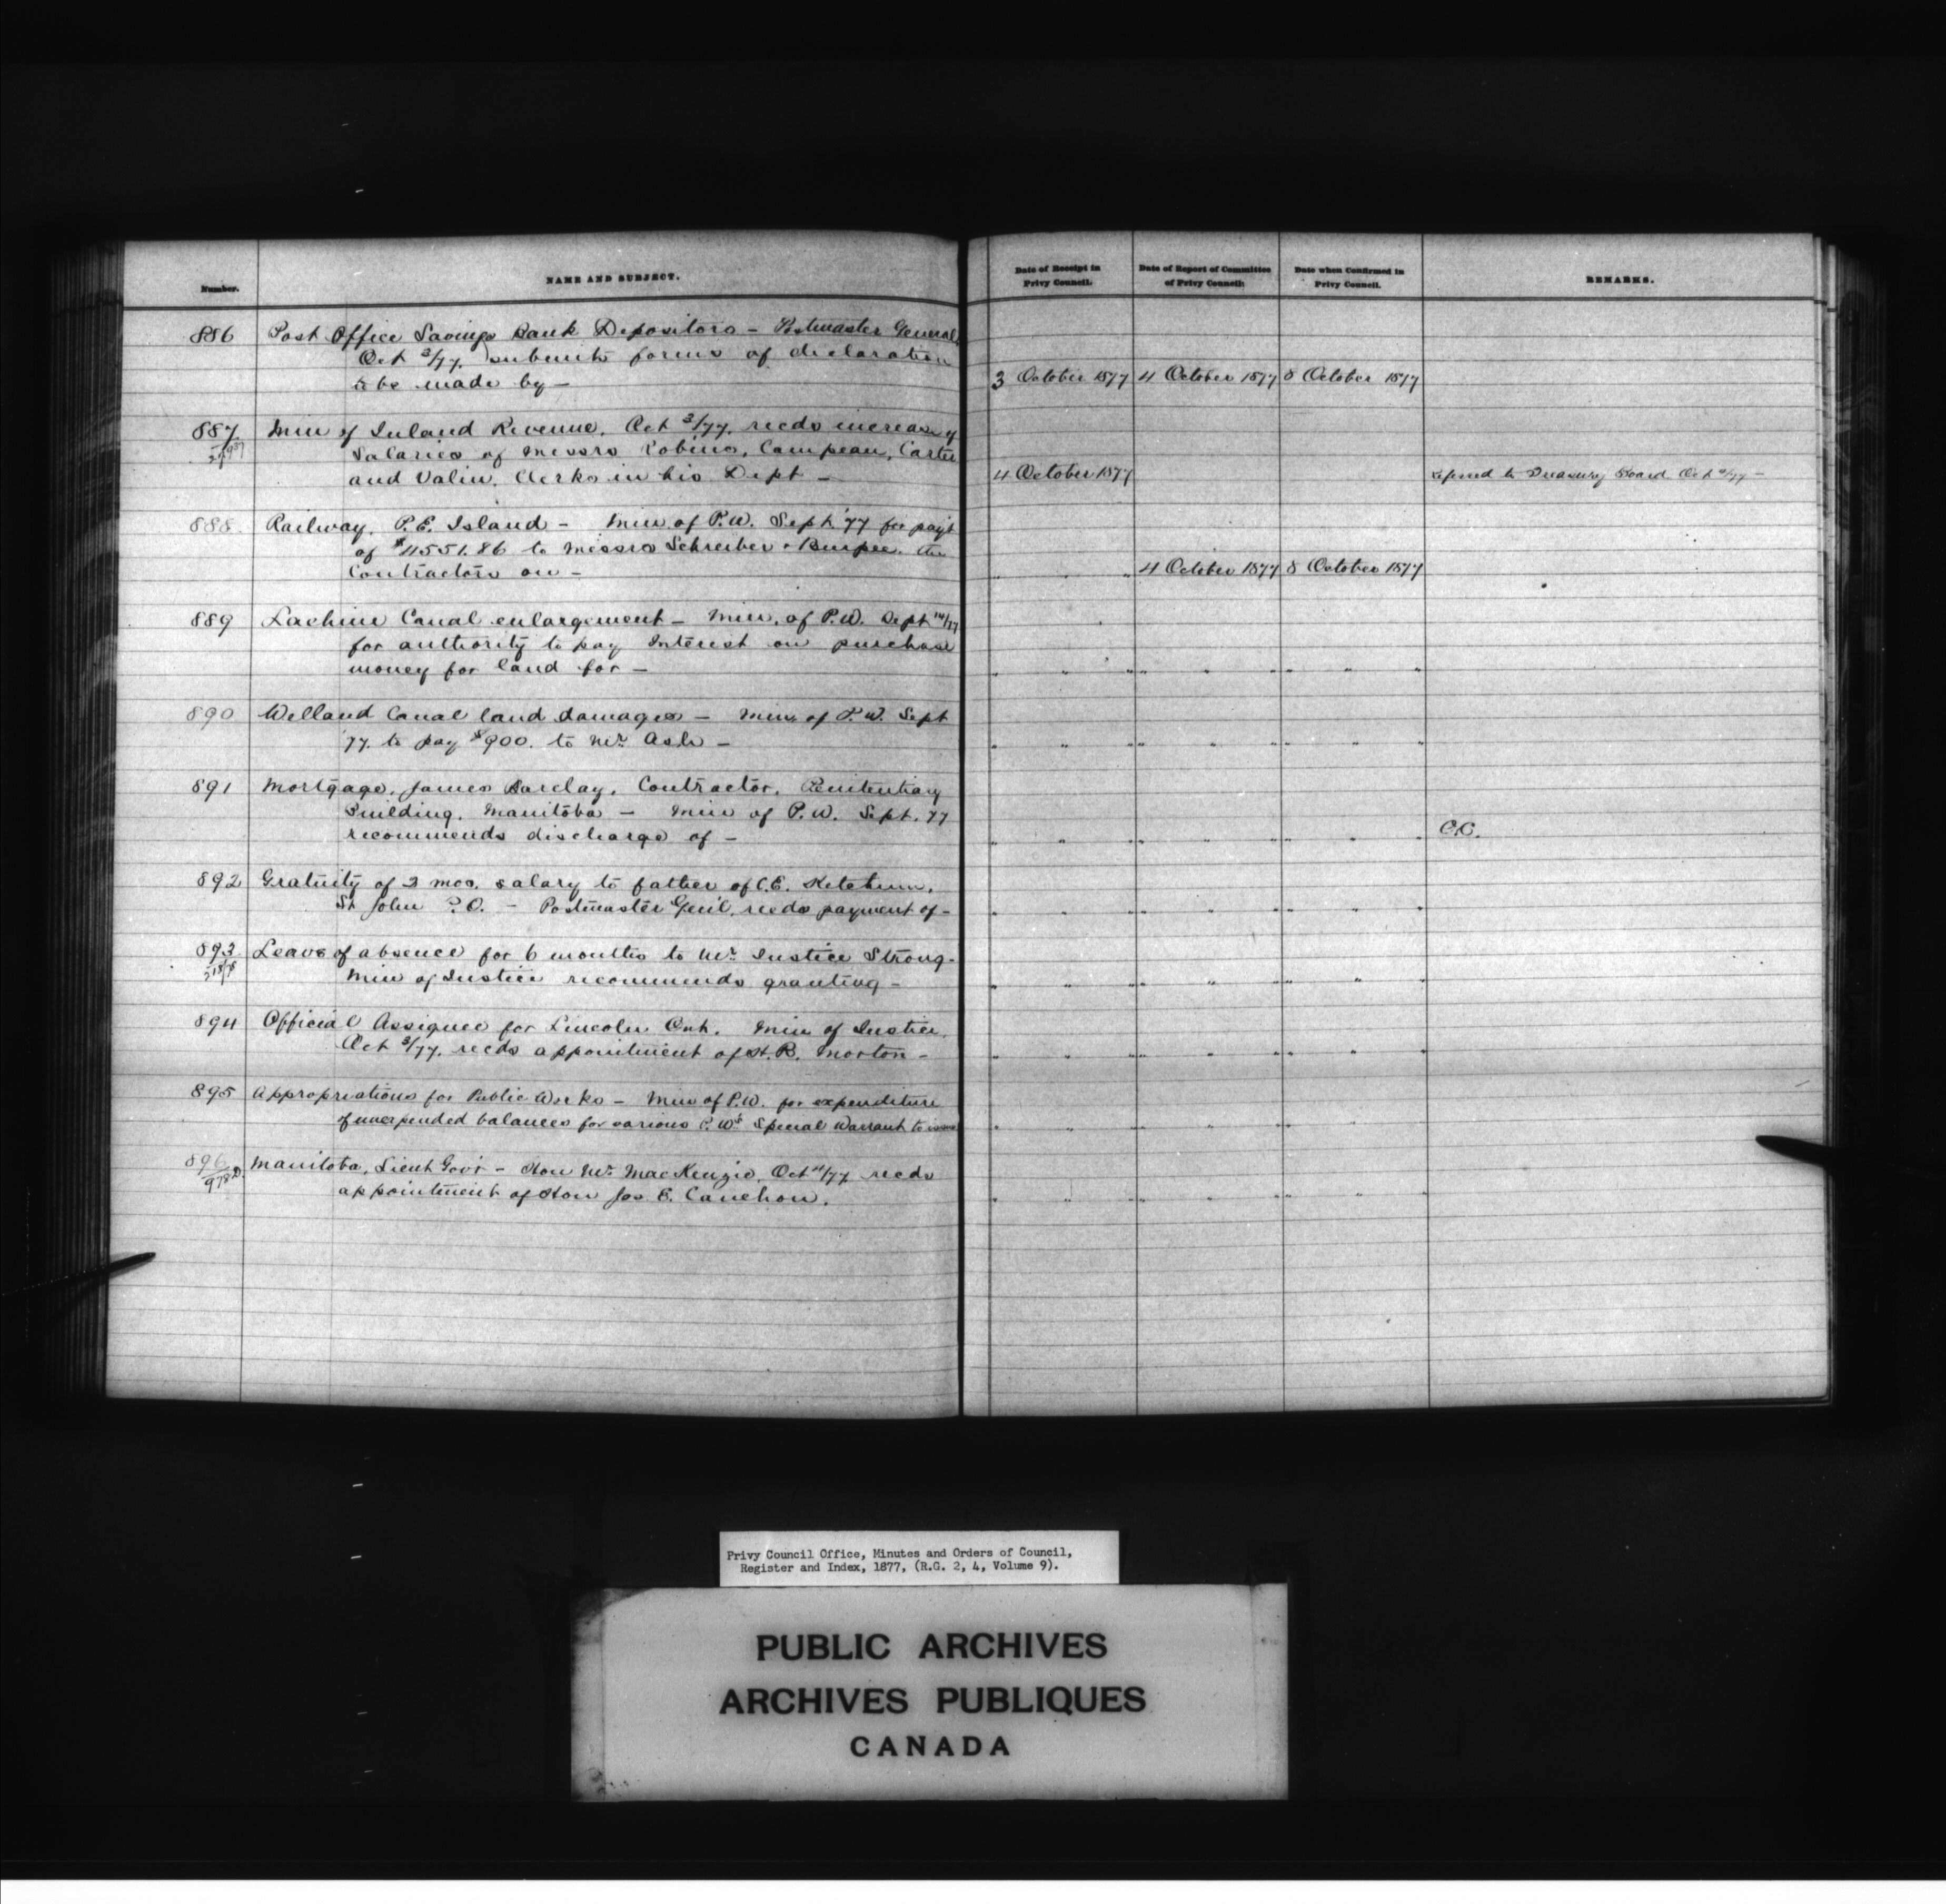 Number.
NAME AND SUBJECT.
Date of Receipt in Privy Council.
Date of Report of Committee of Privy Council.
Date when Confirmed in Privy Council.
REMARKS.
886 Post Office Savings Bank Depositors – Postmaster General,
Oct 2/77. submits forms of declaration
to be made by –
3 October 1877 4 October 1877 8 October 1877
887 Min of Inland Revenue. Oct 3/77. recds increase of
Salaries of Messrs Robins, Campeau, Carter
and Valin. Clerks in his Dept –
4 October 1877 Refered to Treasury Board Oct /77 –
888 Railway. P.E. Island – Min. of P.W. Sept. '77 for payt
of $4551.86 to Messrs Schreiber & Burpee. the
Contractors on –
" " " 4 October 1877 8 October 1877
889 Lachine Canal enlargement – Min. of P.W. Sept 14/77
for authority to pay Interest on purchase
money for land for –
" " " " " " " " "
890 Welland Canal land damages – Min. of P.W. Sept
77. to pay $900. to Mr. Ash –
" " " " " " " " "
891 Mortgage, James Barclay, Contractor, Penitentiary
Building. Manitoba – Min of P.W. Sept. 77
recommends discharge of –
" " " " " " " " " C.C.
892 Gratuity of 2 mos. salary to father of C.E. Ketchum.
St John P.O. – Postmaster Genl. recds payment of –
" " " " " " " " "
893 Leave of absence for 6 months to Mr. Justice Strong –
Min of Justice recommends granting –
" " " " " " " " "
894 Official Assignee for Lincoln Ont. Min of Justice,
Oct 3/77. recds appointment of H.R. Morton –
" " " " " " " " "
895 Appropriations for Public Works – Min of P.W. for expenditure
of unexpended balances for various P.W's Special Warrant to issue
" " " " " " " " "
896 Manitoba, Lieut Govr – Hon Mr. MacKenzie, Oct 4/77 recds
978D. appointment of Hon Jos E. Cauchon.
" " " " " " " " "
Privy Council Office, Minutes and Orders of Council,
Register and Index, 1877, (R.G. 2, 4, Volume 9).
PUBLIC ARCHIVES
ARCHIVES PUBLIQUES
CANADA